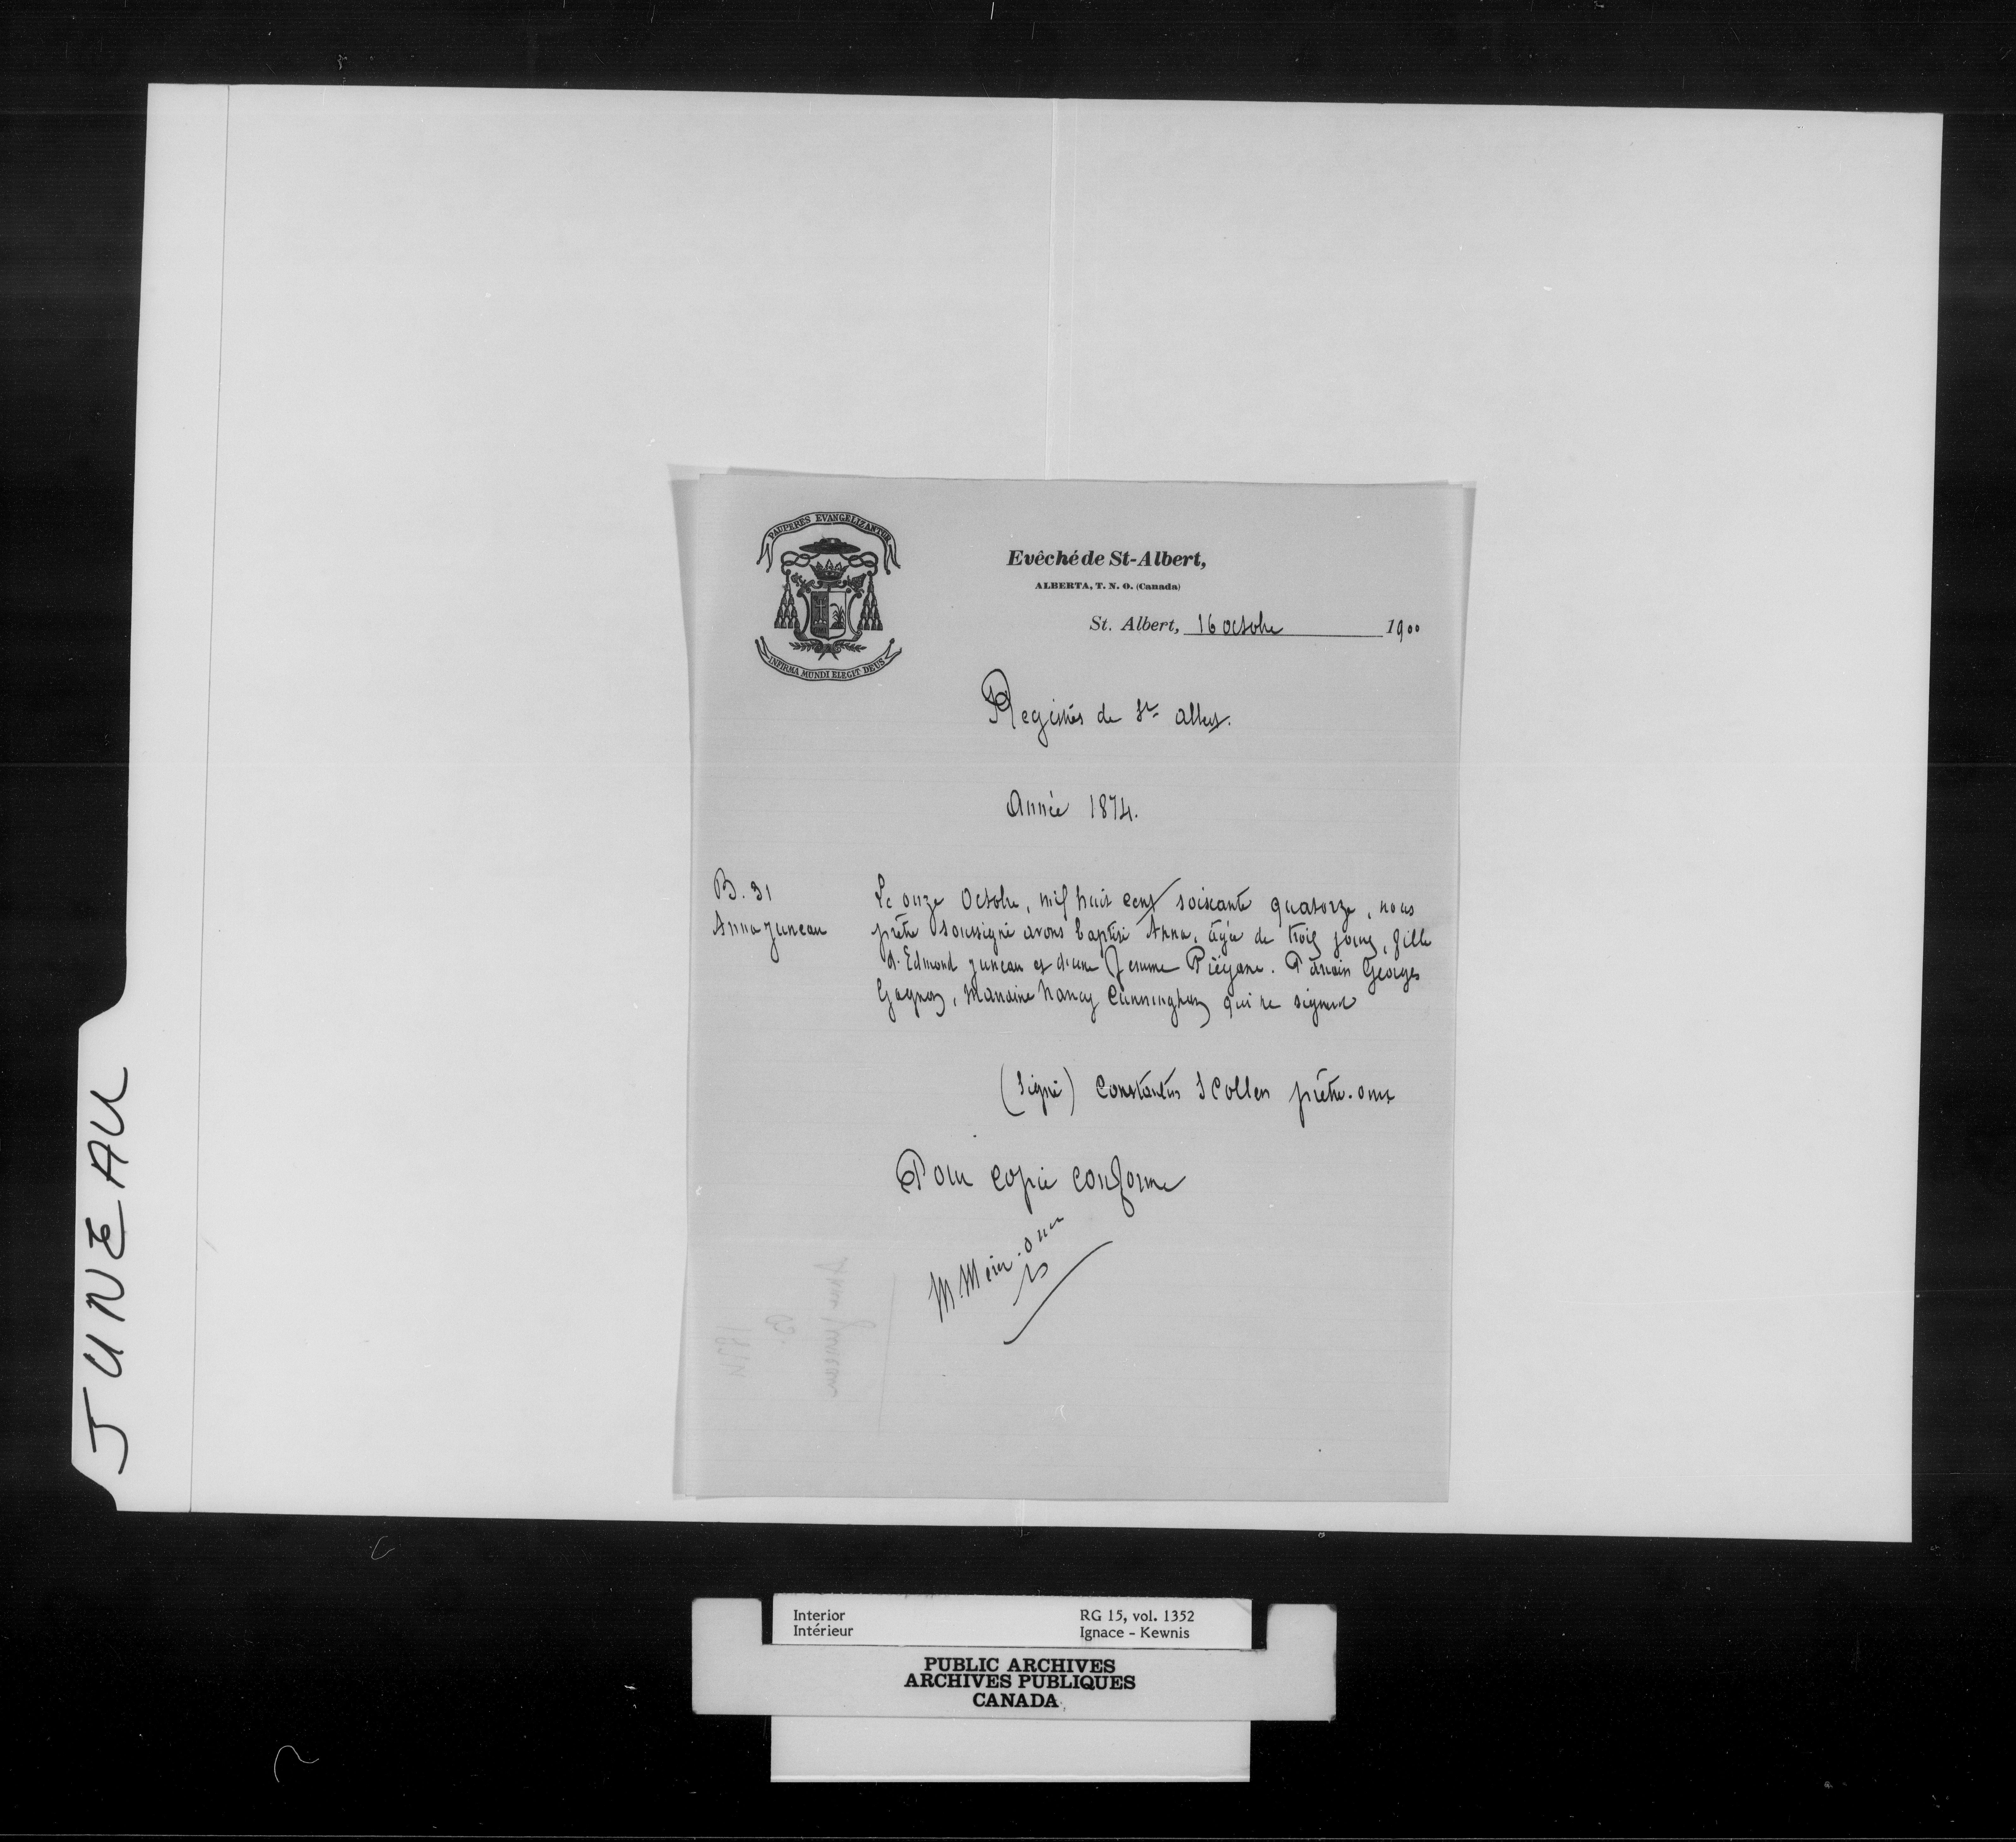 PAUPERES EVANGELIZANTUR
INFIRMA MUNDI ELEGIT DEUS
Evêché de St-Albert,
ALBERTA, T. N. O. (Canada)
St. Albert, 16 octobre 1900
Registres de St. Albert.
Année 1874.
B. 31
Anna Juneau
Le onze Octobre, mil huit cent soixante quatorze, nous
prêtre soussigné avons baptisé Anna, âgée de trois jours, fille
d'Edmond Juneau et d'une femme Piégane. Parrain Georges
Gagnon, Marraine Nancy Cunningham qui ne signent
(Signé) Constantin Scollen prêtre. omi
Pour copie conforme
Anna Juneau
B.
1874
JUNEAU
Interior
Intérieur
RG 15, vol. 1352
Ignace - Kewnis
PUBLIC ARCHIVES
ARCHIVES PUBLIQUES
CANADA